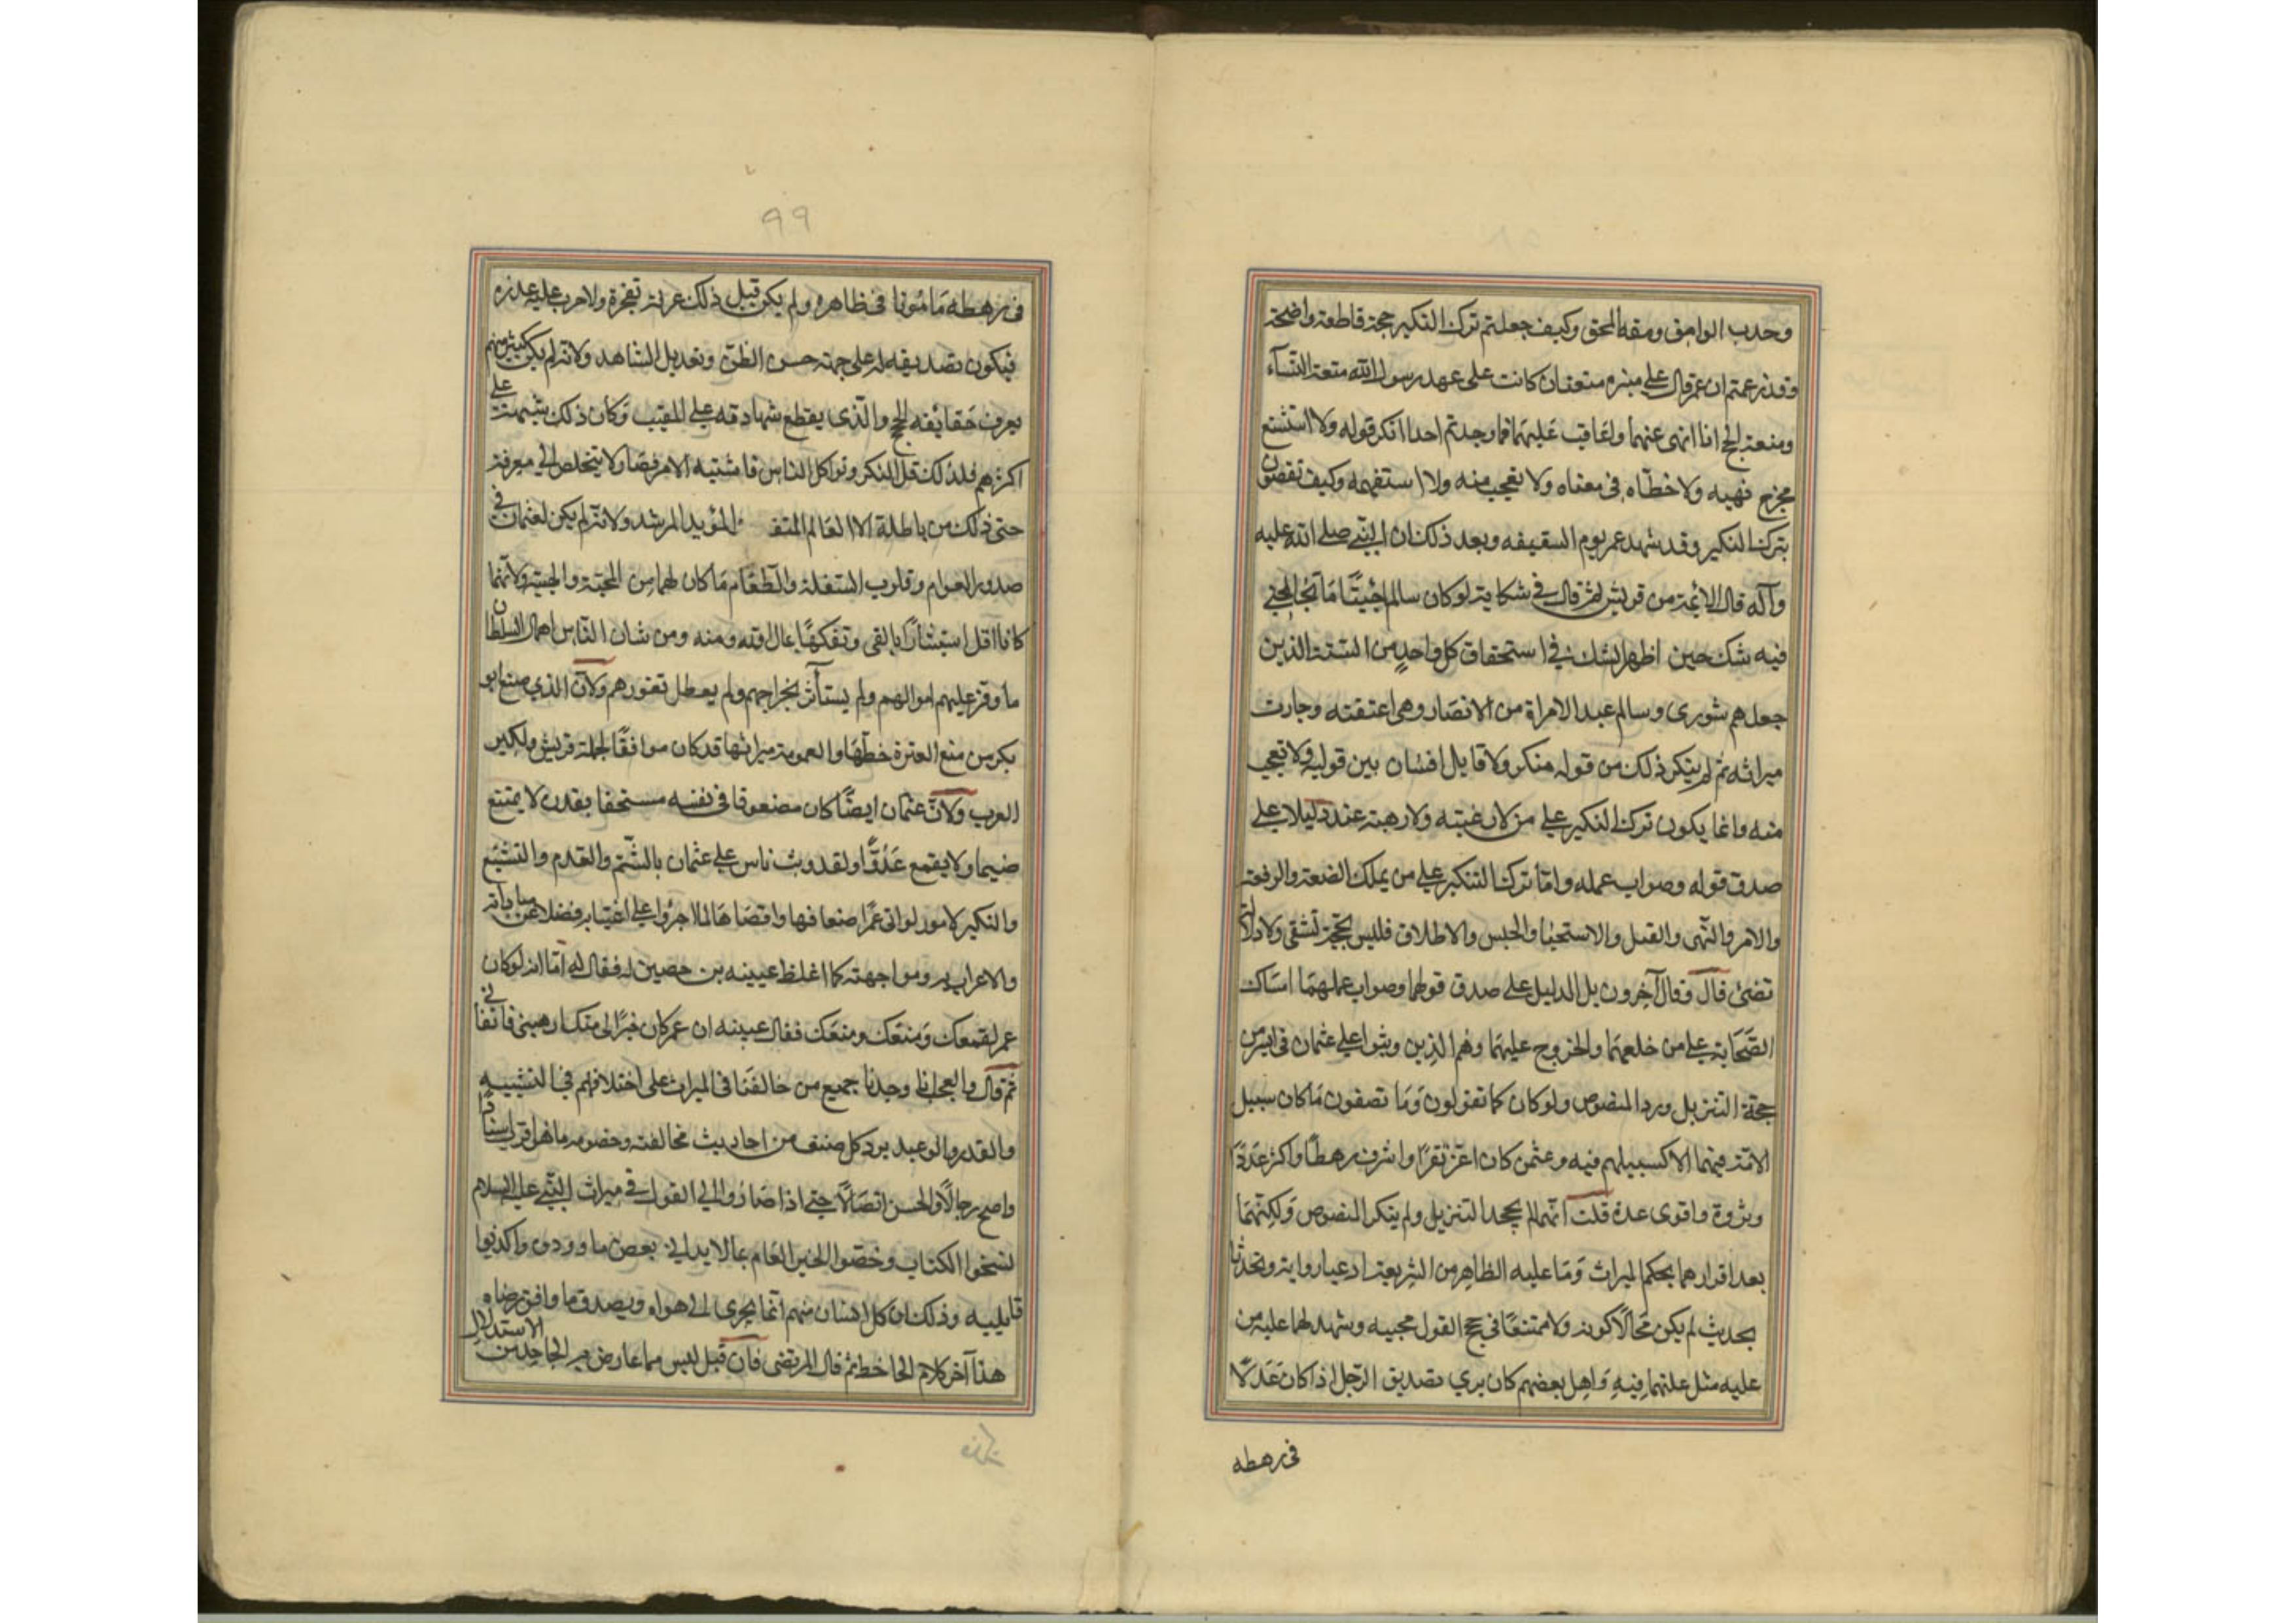 وحدب الوامق ومقه المحق وكيف جعلتم ترك النكير حجة قاطعة واضحة
وقد زعمتم ان عمر قال على منبره متعتان كانت على عهد رسول الله متعة النسآء
ومتعة الحج انا انهى عنهما واعاقب عليهما فما وجدتم احدا انكر قوله ولا استشنع
مخرج نهيه ولا خطّاه فى معناه ولا تعجب منه ولا استفهمه وكيف تقضون
بترك النكير وقد شهد عمر يوم السقيفه وبعد ذلك ان النبي صلى الله عليه
وآله قال الائمة من قريش ثم قال في شكايته لو كان سالم حيّاً ما تخالجني
فيه شك حين اظهر الشك في استحقاق كل واحدٍ من الستة الذين
جعلهم شورى وسالم عبد الامراة من الانصار وهى اعتقته وحازت
ميراثه ثم لم ينكر ذلك من قوله منكر ولا قابل انسان بين قوليه ولا تعجب
منه وانما يكون ترك النكير على من لا رغبته ولا رهبة عنده دليلا على
صدق قوله وصواب عمله وامّا ترك النكير على من يملك الضعة والرفعة
والامر والنّهى والقتل والاستحيا والحبس والاطلاق فليس بحجة تشقى ولا دلالة
تضئ قال وقال آخرون بل الدليل على صدق قولهما وصواب عملهما امساك
الصحابة على من خلعهما والخروج عليهما وهم الذين وثبوا على عثمان فى ايسر من
حجة التنزيل ورد المنصوص ولو كان كما تقولون وما تصفون ما كان سبيل
الامّة فيهما الا كسبيلهم فيه وعثمن كان اعزّ نفرًا واشرف رهطًا واكثر عددًا
وثروة واقوى عدة قلت انّهما لم يجحدا لتنزيل ولم ينكرا المنصوص ولكنّهما
بعد اقرارهما بحكم الميراث وما عليه الظاهر من الشريعة ادعيا رواية وتحدثا
بحديث لم يكن محالًا كونه ولا ممتنعًا فى حجج القول مجيبه وشهد لهما عليه من
عليه مثل علتهما فيه واهل بعضهم كان يرى تصديق الرّجل اذا كان عدلًا
فى رهطه
٩٩
فى رهطه مأمونا فى ظاهره ولم يكن قبل ذلك عرفه تفجرة ولا جرب عليه غدره
فيكون تصديقه له على جهة حسن الظنّ وتعديل الشاهد ولانه لم يكن كثير منهم
يعرف حقايقه الحج والذى يقطع شهادته على المغيب وكان ذلك شبهة على
اكثرهم فلذلك قل النكر وتواكل الناس فاشتبه الامر فصار لا يتخلص الى معرفة
حق ذلك من باطلة الا العالم المتقد المؤيد المرشد ولانه لم يكن لعثمان فى
صدور العوام وقلوب السفلة والطغام ما كان لهما من المحبّة والهيبة ولانّهما
كانا اقل استئثارًا بالفى وتفكهًا بمال الله ومنه ومن شان النّاس اهمال السلطان
ما وفر عليهم اموالهم ولم يستأثر بخراجهم ولم يعطل ثغورهم ولانّ الذي صنع ابو
بكر من منع العترة حظّها والعمومة ميراثها قد كان موافقًا لجلة قريش ولكبير
العرب ولانّ عثمان ايضًا كان مضعوفا فى نفسه مستخفا بقدره لا يمتنع
ضيما ولا يقمع عدوًّا ولقد وثب ناس على عثمان بالشّتم والقدم والتشنيع
والنكير لامور لو اتى عمر اضعافها واقصاها لما اجترؤا على اغتيابه فضلا عن مباداته
والاعراب به ومواجهته كما اغلظ عيينه بن حصين له فقال له اما انه لو كان
عمر لقمعك ومنعك ومنعك فقال عيينه ان عمر كان خيرًا لى منك ارهبنى فاتقانى
ثم قال والعجب انا وجدنا جميع من خالفنا فى الميراث على اختلافهم فى التشبيه
والقدر والوعيد يرد كل صنف من احاديث مخالفته وخصومه ما هو اقرب اسنادًا
واصح رجالًا والحسن اتصالًا حتى اذا صاروا الى القول في ميراث النبي عليه السلام
نسخوا الكتاب وخصّوا الخبر العام بما لا يدانى بعض ما رووه واكذبوا
قايليه وذلك ان كل انسان منهم انما يجرى الى هواه ويصدق ما وافق رضاه
هذا آخر كلام الجاحظ ثم قال المرتضى فان قيل ليس مما عارض به الجاحظ من الاستدلال